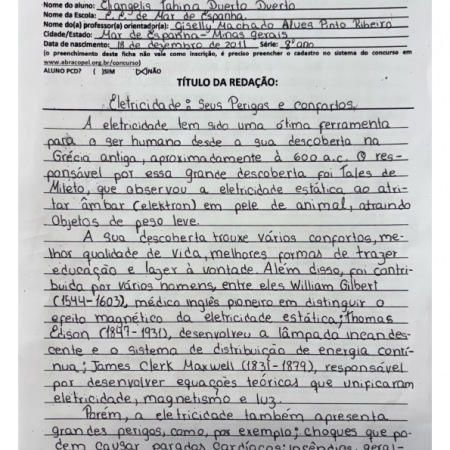 Nome do aluno: Evangelis Tahina Duerto Duerto
Nome da Escola: E.E. de Mar de Espanha.
Nome do(a) professor(a) orientador(a): Giselly Machado Alves Pinto Ribeiro
Cidade/Estado: Mar de Espanha - Minas gerais
Data de nascimento: 18 de dezembro de 2011 Série: 8º ano
(o preenchimento desta ficha não vale como inscrição, é preciso preencher o cadastro no sistema do concurso em
www.abracopel.org.br/concurso)
ALUNO PCD? ( )SIM (X)NÃO
TÍTULO DA REDAÇÃO:
Eletricidade: Seus Perigos e confortos.
A eletricidade tem sido uma ótima ferramenta
para o ser humano desde a sua descoberta na
Grécia antiga, aproximadamente à 600 a.c. O res-
ponsável por essa grande descoberta foi Tales de
Mileto, que observou a eletricidade estática ao atri-
tar âmbar (elektron) em pele de animal, atraindo
Objetos de peso leve.
A sua descoberta trouxe vários confortos, me-
lhor qualidade de vida, melhores formas de trazer
educação e lazer à vontade. Além disso, foi contri-
buida por vários homens, entre eles William Gilbert
(1544-1603), médico inglês pioneiro em distinguir o
efeito magnético da eletricidade estática; Thomas
Edison (1847-1931), desenvolveu a lâmpada incandes-
cente e o sistema de distribuição de energia contí-
nua; James Clerk Maxwell (1831-1879), responsável
por desenvolver equações teóricas que unificaram
eletricidade, magnetismo e luz.
Porém, a eletricidade também apresenta
grandes perigos, como, por exemplo; choques que po-
dem causar paradas cardíacas; incêndios, geral-